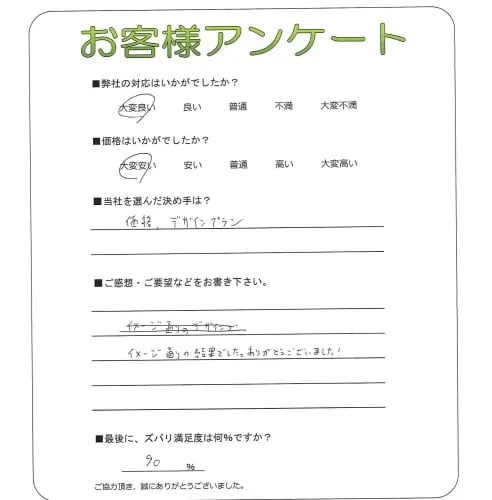 お客様アンケート
■弊社の対応はいかがでしたか?
大変良い 良い 普通 不満 大変不満
■価格はいかがでしたか?
大変安い 安い 普通 高い 大変高い
■当社を選んだ決め手は?
価格、デザインプラン
■ご感想・ご要望などをお書き下さい。
イメージ通りのデザインで
イメージ通りの結果でした。ありがとうございました!
■最後に、ズバリ満足度は何%ですか?
90 %
ご協力頂き、誠にありがとうございました。